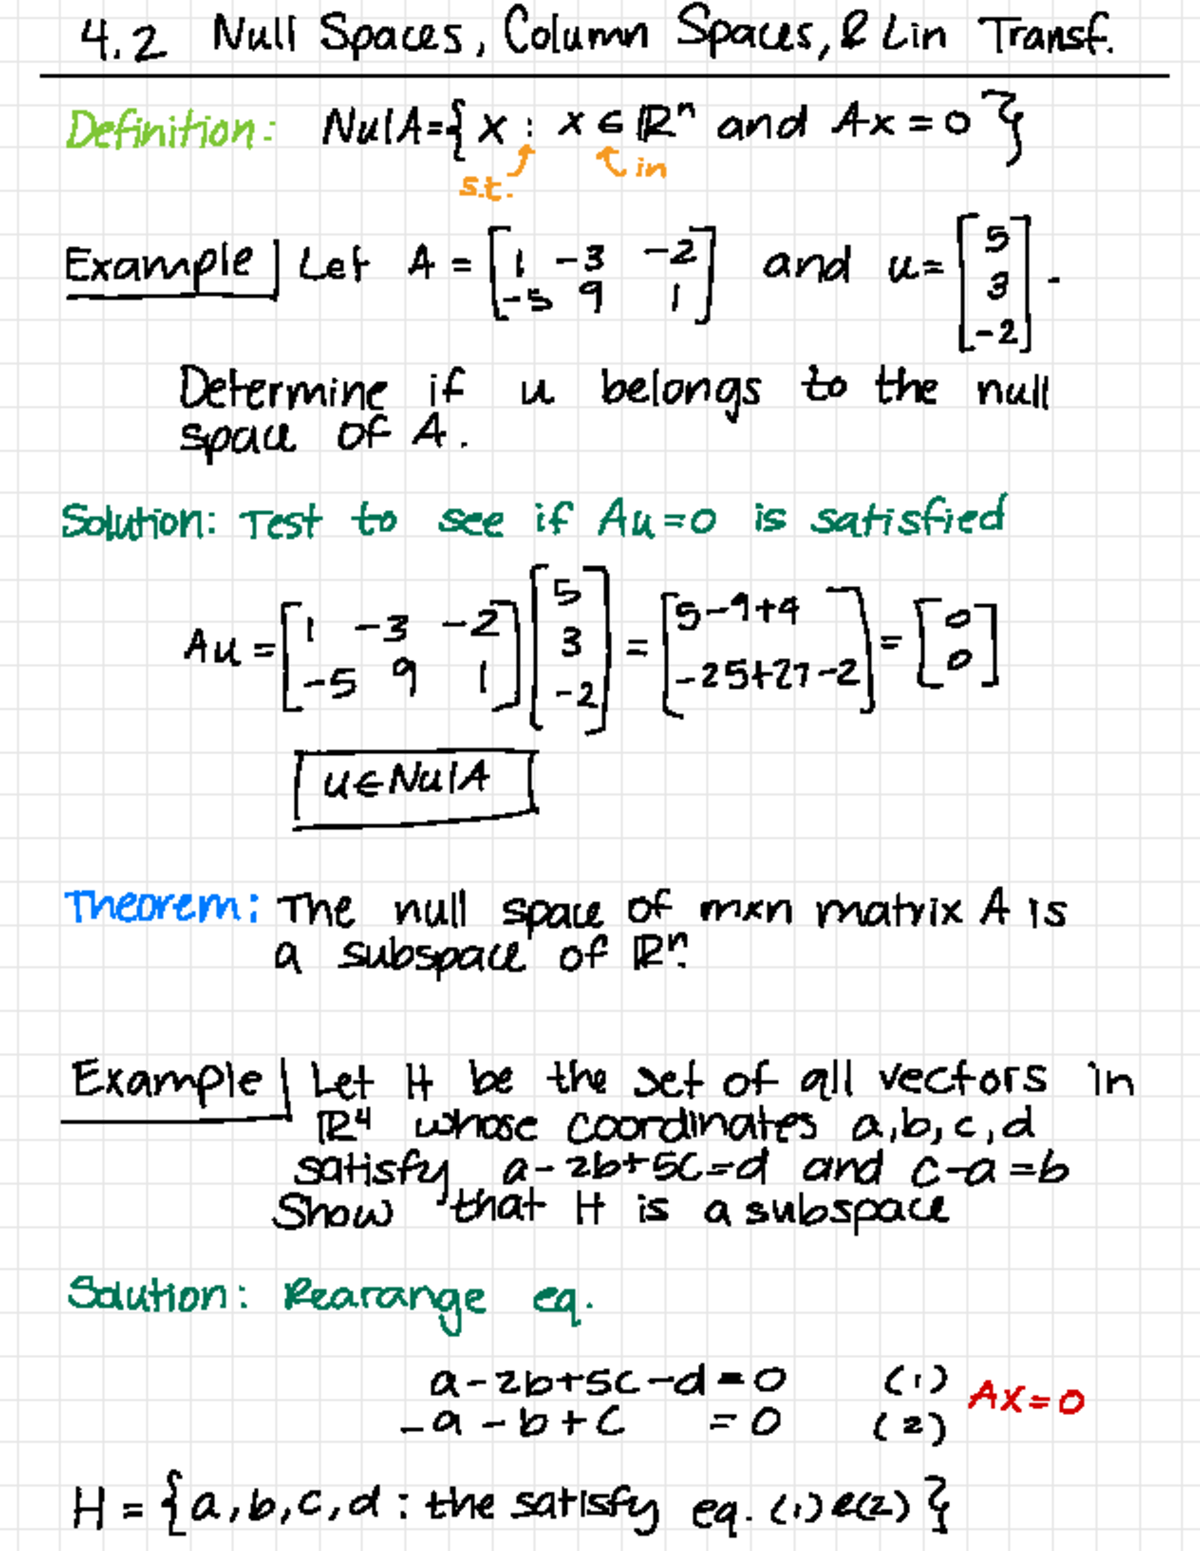 4.2 Null Spaces, Column Spaces, & Lin Transf.
Definition: NulA={x : x ∈ ℝⁿ and Ax = 0}
s.t. in
Example Let A = [1 -3 -2; -5 9 1] and u= [5; 3; -2].
Determine if u belongs to the null
space of A.
Solution: Test to see if Au=0 is satisfied
Au = [1 -3 -2; -5 9 1] [5; 3; -2] = [5-9+4; -25+27-2] = [0; 0]
u∈NulA
Theorem: The null space of mxn matrix A is
a subspace of ℝⁿ.
Example Let H be the set of all vectors in
ℝ⁴ whose coordinates a,b,c,d
satisfy a-2b+5c=d and c-a=b
Show that H is a subspace
Solution: Rearange eq.
a-2b+5c-d=0 (1)
AX=0
-a-b+c =0 (2)
H = {a,b,c,d : the satisfy eq. (1)&(2)}